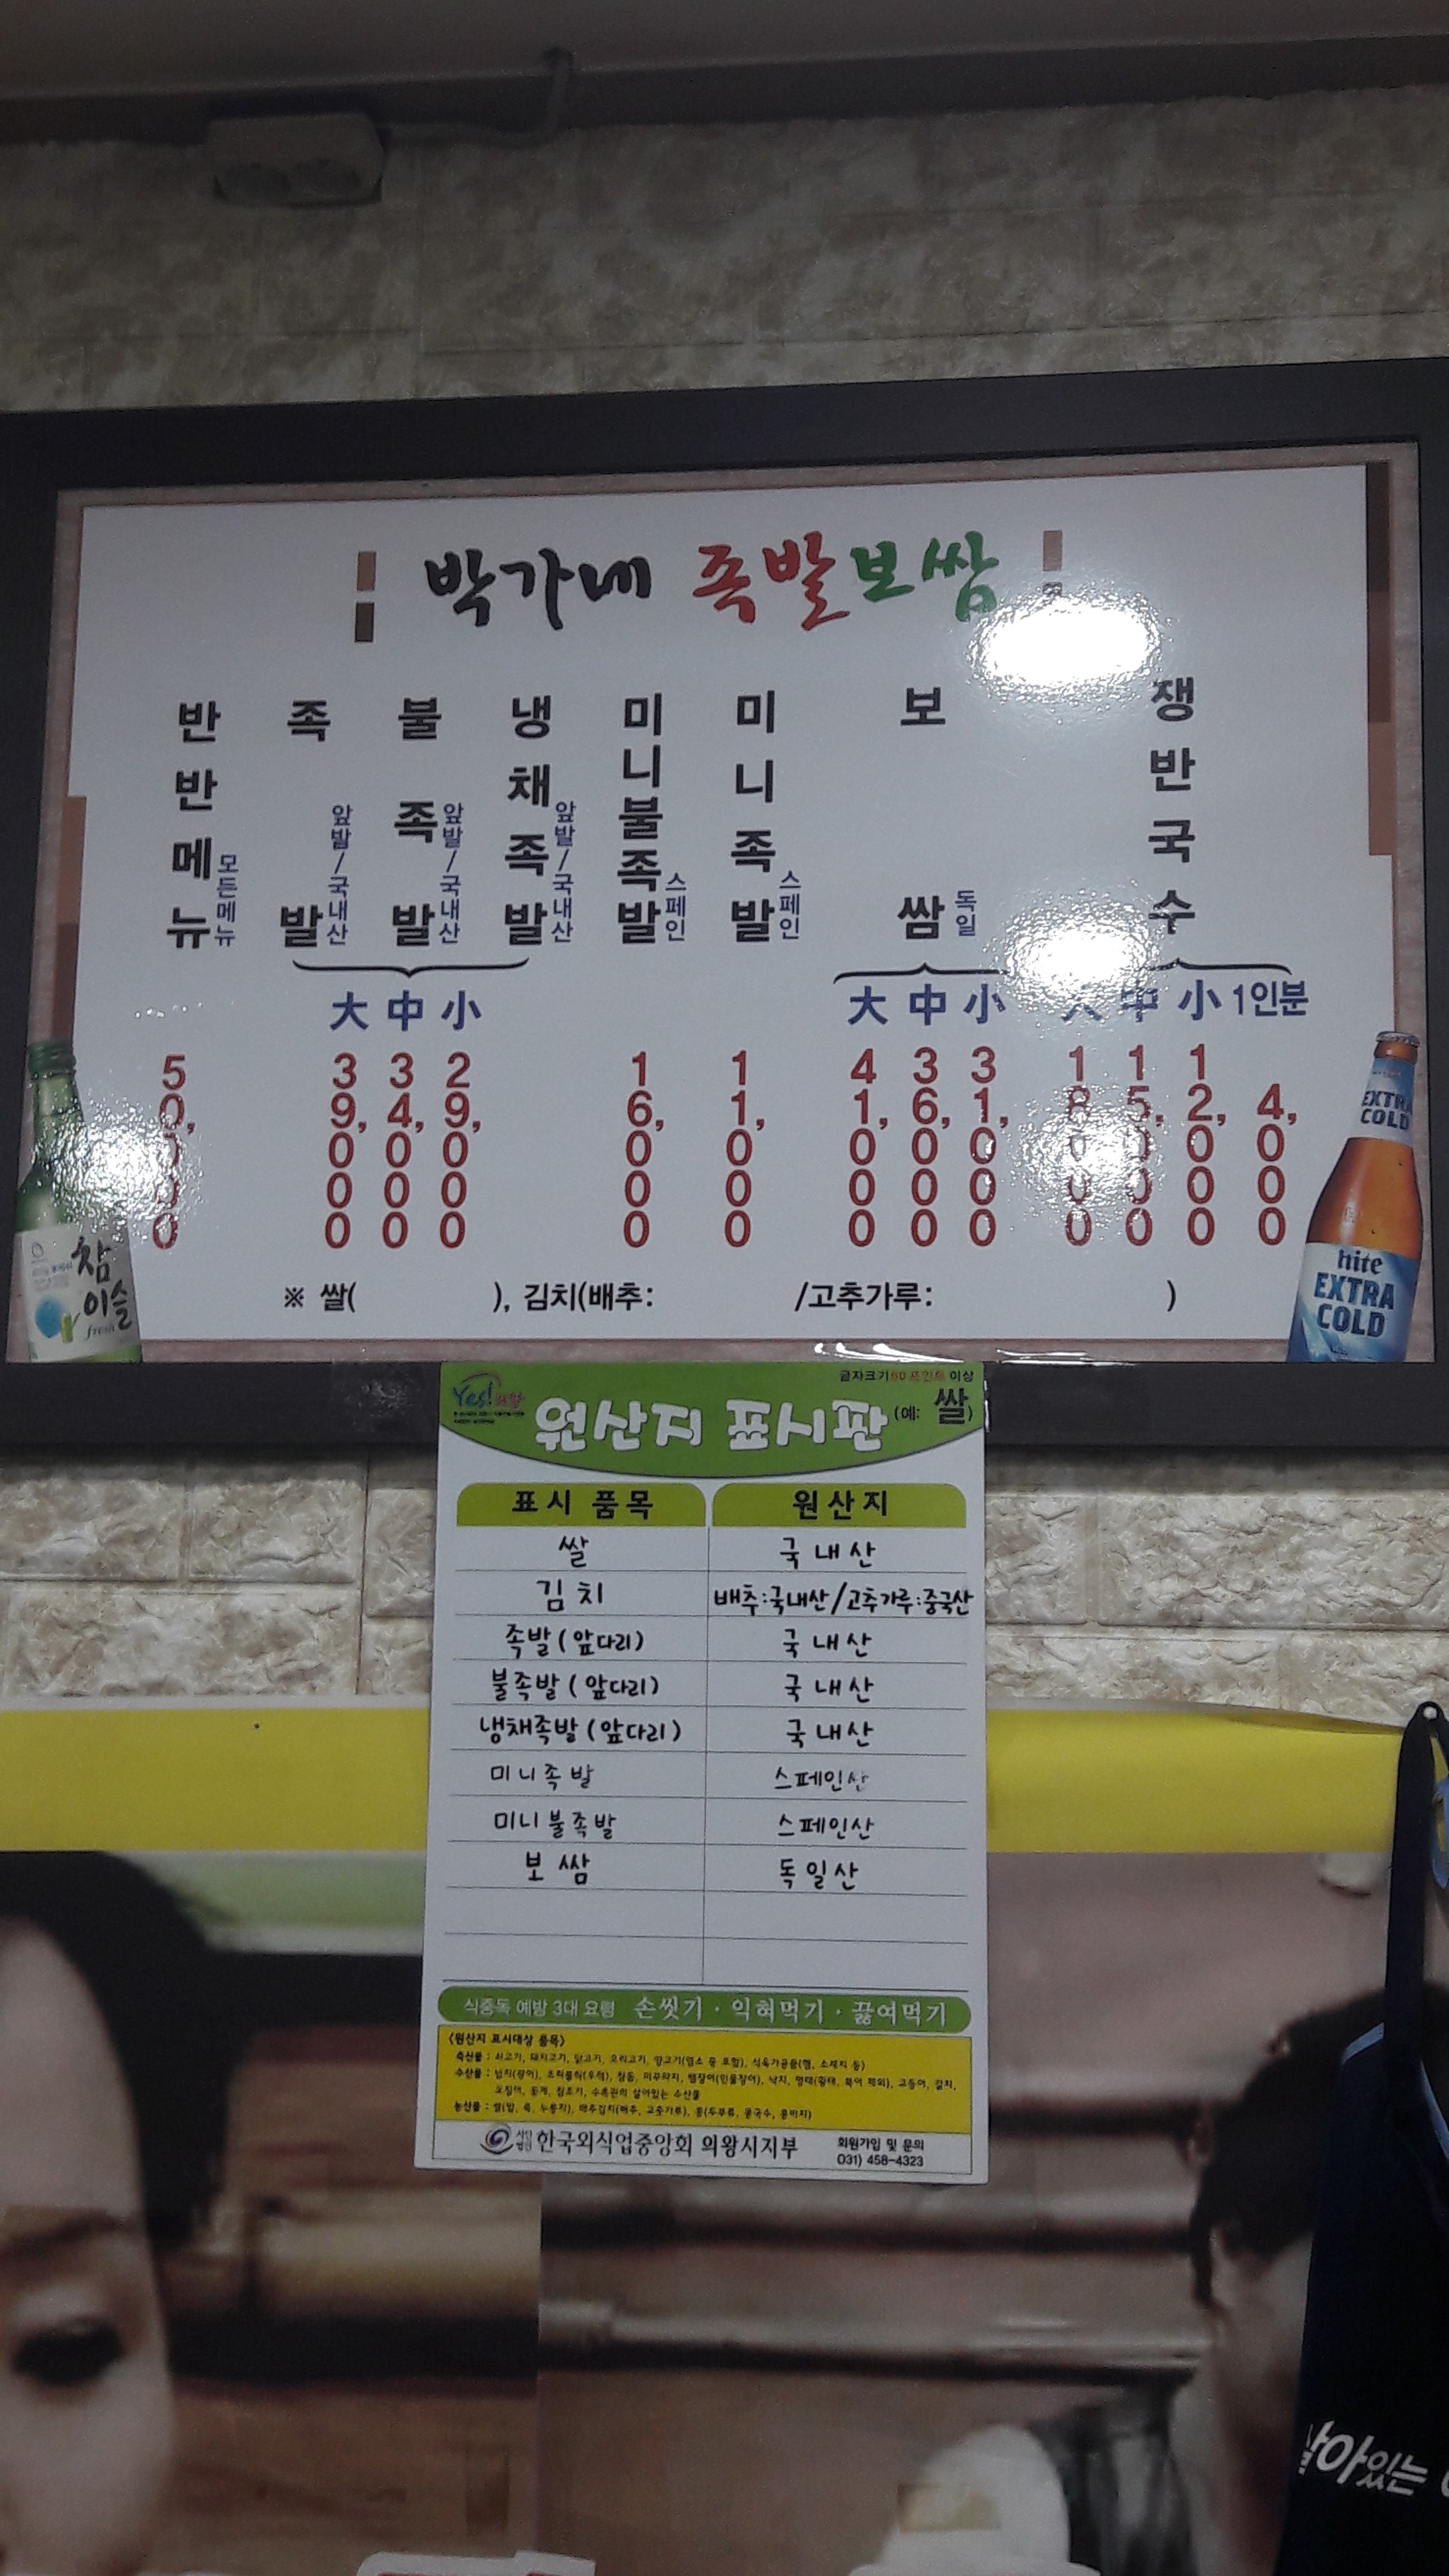 박가네 족발보쌈
반반메뉴 모든메뉴
족발 앞발/국내산
불족발 앞발/국내산
냉채족발 앞발/국내산
미니불족발 스페인
미니족발 스페인
보쌈 독일
쟁반국수
大 中 小
大 中 小
大 中 小 1인분
50,000
39,000 34,000 29,000
16,000
11,000
41,000 36,000 31,000
18,000 15,000 12,000 4,000
※ 쌀( ), 김치(배추: /고추가루: )
참이슬
fresh
EXTRA COLD
hite
EXTRA
COLD
글자크기60 포인트 이상
Yes! 의왕
원산지 표시판 (예: 쌀)
표시 품목 원산지
쌀 국내산
김치 배추:국내산/고추가루:중국산
족발(앞다리) 국내산
불족발(앞다리) 국내산
냉채족발(앞다리) 국내산
미니족발 스페인산
미니불족발 스페인산
보쌈 독일산
식중독 예방 3대 요령 손씻기·익혀먹기·끓여먹기
<원산지 표시대상 품목>
축산물 : 쇠고기, 돼지고기, 닭고기, 오리고기, 양고기(염소 등 포함), 식육가공품(햄, 소세지 등)
수산물 : 넙치(광어), 조피볼락(우럭), 참돔, 미꾸라지, 뱀장어(민물장어), 낙지, 명태(황태, 북어 제외), 고등어, 갈치,
오징어, 꽃게, 참조기, 수족관의 살아있는 수산물
농산물 : 쌀(밥, 죽, 누룽지), 배추김치(배추, 고춧가루), 콩(두부류, 콩국수, 콩비지)
사단법인 한국외식업중앙회 의왕시지부
회원가입 및 문의
031) 458-4323
살아있는